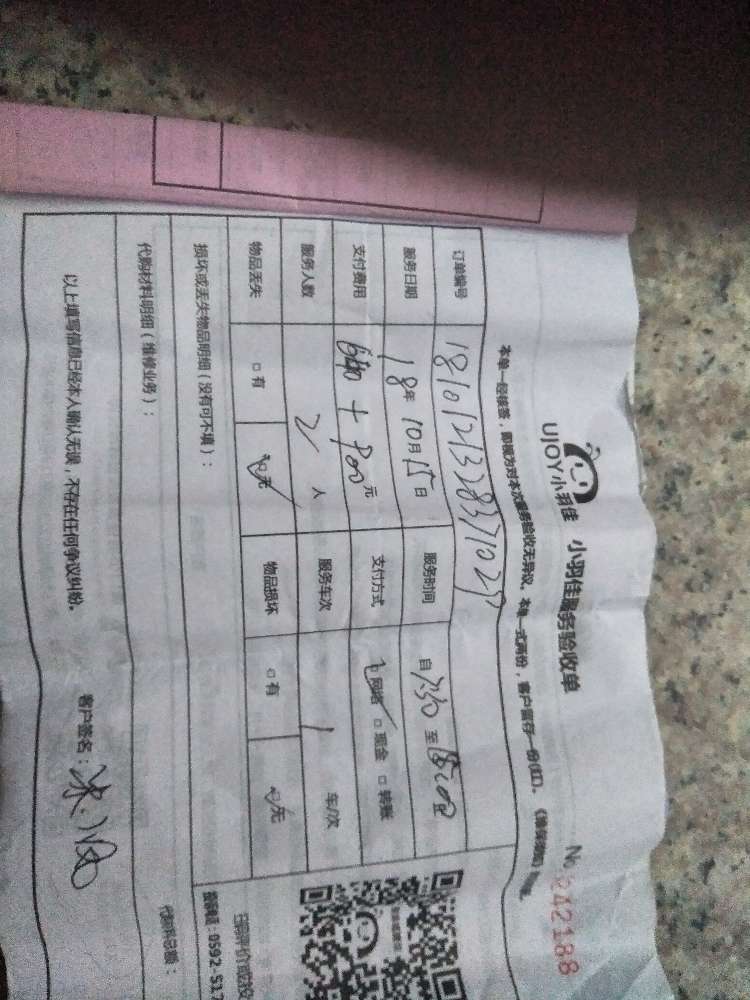 UJOY小羽佳 小羽佳服务验收单
No 0242188
本单一经核签，即视为对本次服务验收无异议。本单一式两份，客户留存一份(红)。
订单编号
服务日期 18年10月15日 服务时间 自 至
支付费用 640+900元 支付方式 网络 现金 转账
服务人数 2人 服务车次 1 车/次
物品丢失 有 无 物品损坏 有 无
损坏或丢失物品明细（没有可不填）：
代购材料明细（维修业务）：
代购材料总额：
以上填写信息已经本人确认无误，不存在任何争议纠纷。 客户签名：
扫码评价或投
投诉电话：0592-517